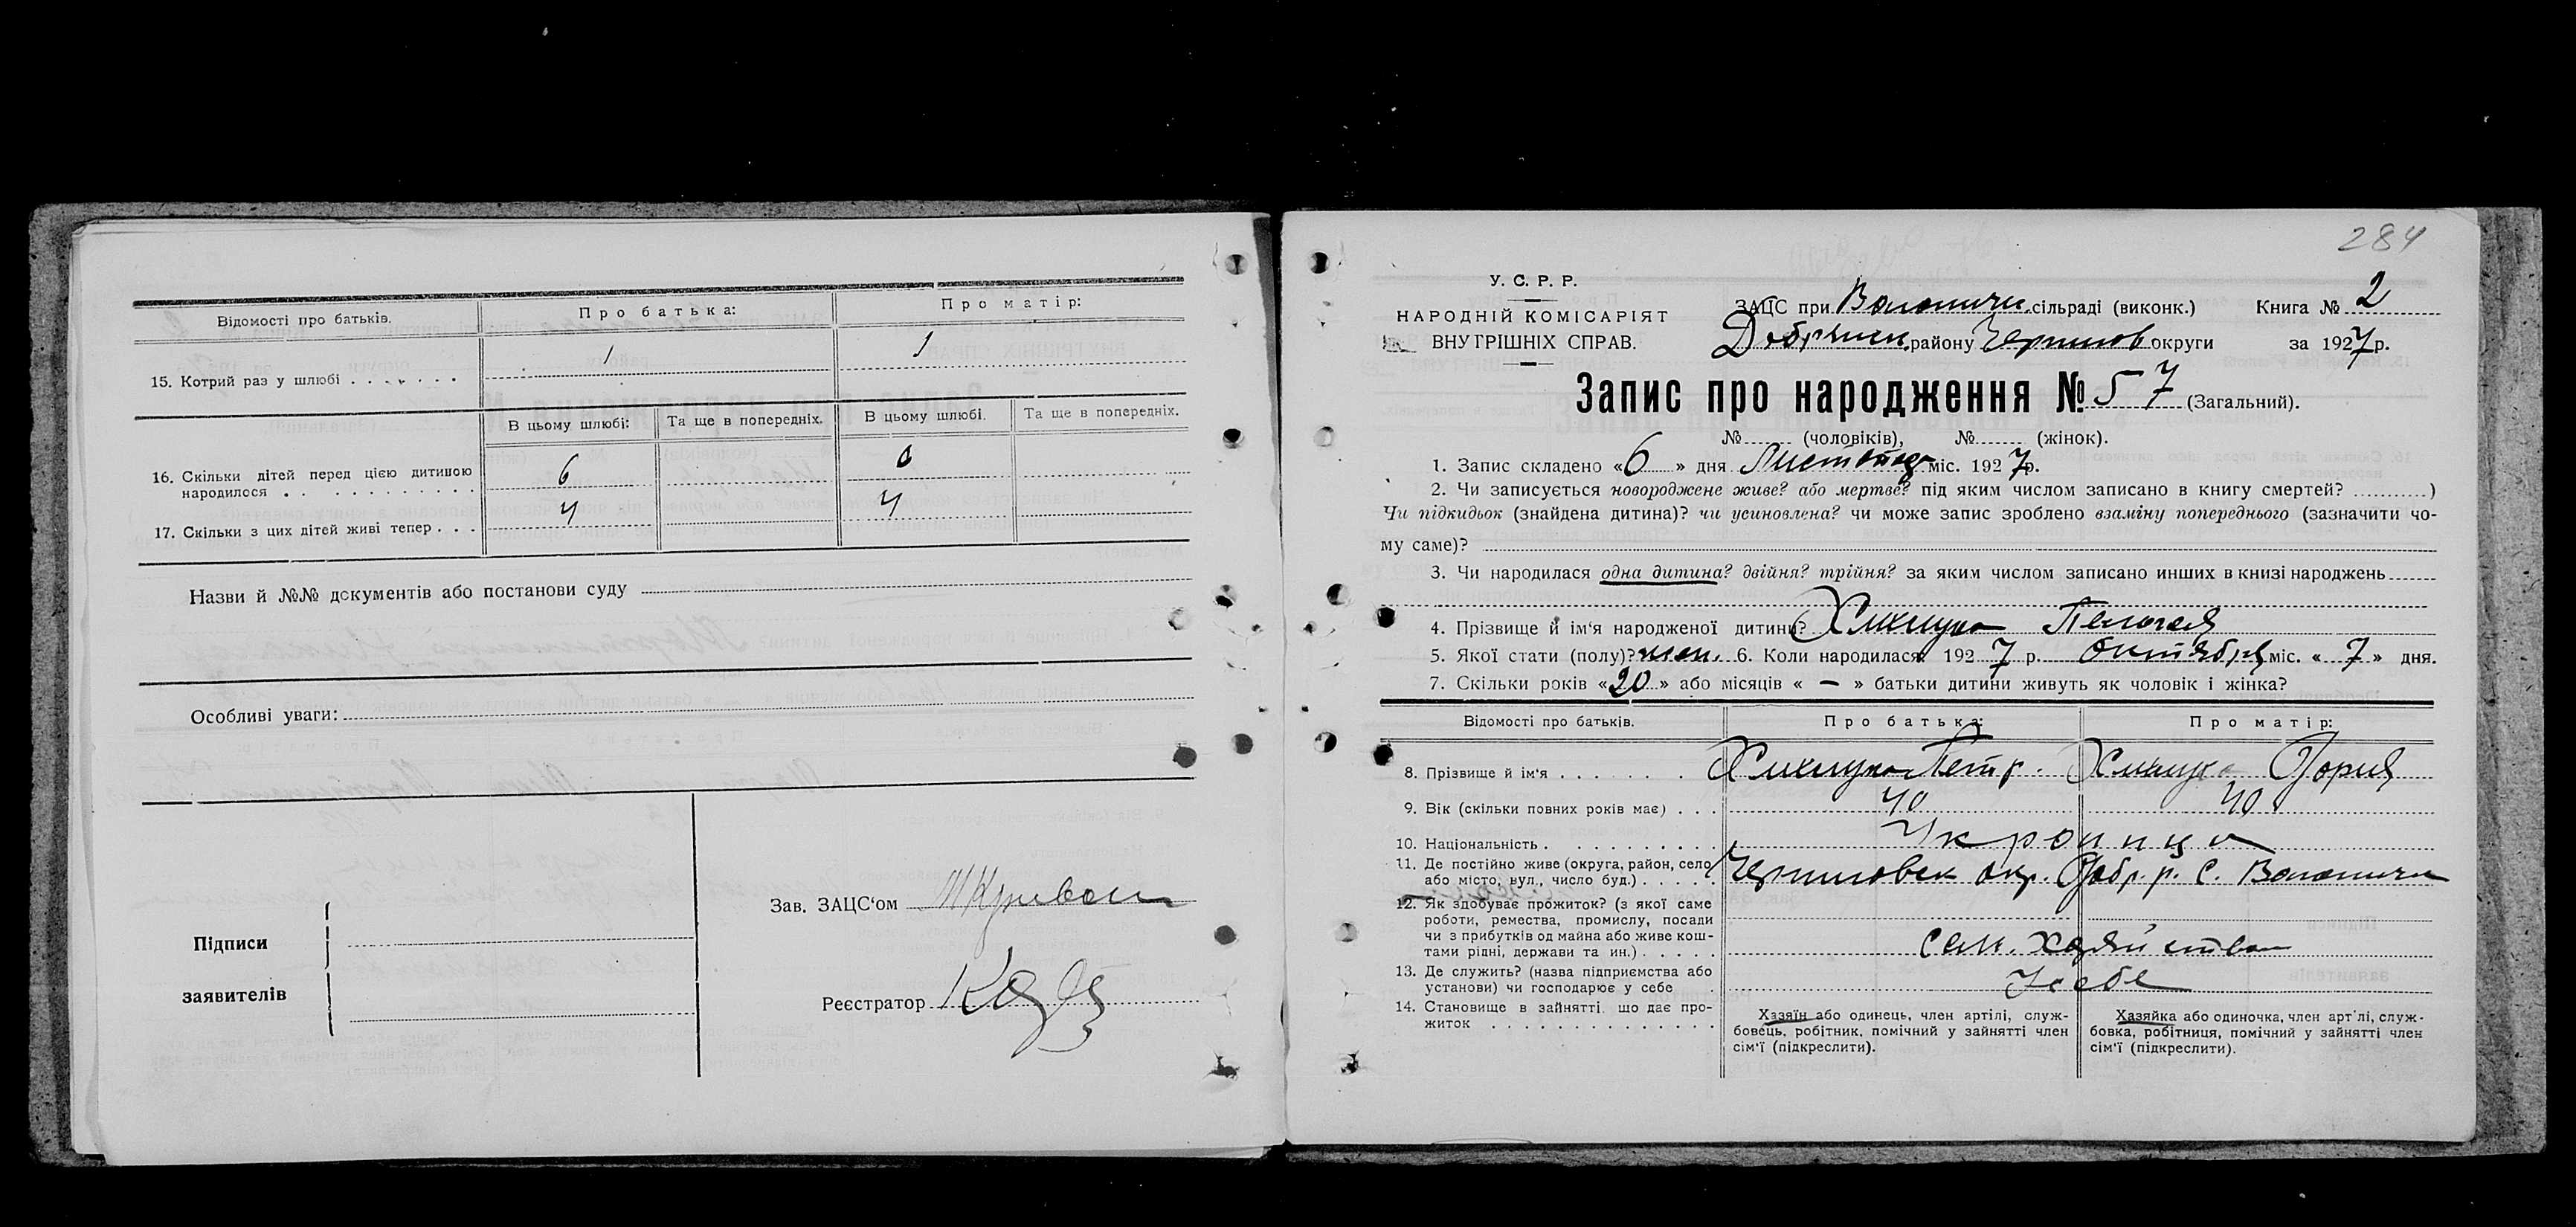 Відомості про батьків.
Про батька:
Про матір:
15. Котрий раз у шлюбі . . . . . . .
1
1
В цьому шлюбі:
Та ще в попередніх.
В цьому шлюбі.
Та ще в попередніх.
16. Скільки дітей перед цією дитиною
народилося . . . . . . . . . . . .
6
6
17. Скільки з цих дітей живі тепер . . .
4
4
Назви й №№ документів або постанови суду
Особливі уваги:
Підписи
заявителів
Зав. ЗАЦС'ом
Реєстратор
284
У. С. Р. Р.
НАРОДНІЙ КОМІСАРІЯТ
ВНУТРІШНІХ СПРАВ.
ЗАЦС при Волоничи сільраді (виконк.) Книга № 2
Добрянск. району Чернигов округи за 1927 р.
Запис про народження № 57 (Загальний).
№ (чоловіків), № (жінок).
1. Запис складено « 6 » дня Листопада міс. 1927 р.
2. Чи записується новороджене живе? або мертве? під яким числом записано в книгу смертей? )
Чи підкидьок (знайдена дитина)? чи усиновлена? чи може запис зроблено взаміну попереднього (зазначити чо-
му саме)?
3. Чи народилася одна дитина? двійня? трійня? за яким числом записано инших в книзі народжень
4. Прізвище й ім'я народженої дитини? Пелагея
5. Якої стати (полу)? жен. 6. Коли народилася 1927 р. Октября міс. « 7 » дня.
7. Скільки років « 20 » або місяців « — » батьки дитини живуть як чоловік і жінка?
Відомості про батьків.
Про батька:
Про матір:
8. Прізвище й ім'я . . . . . . . Петр. Дария
9. Вік (скільки повних років має) . . . 40 40
10. Національність . . . . . . . . . . Украинци
11. Де постійно живе (округа, район, село
або місто, вул., число буд.) . . . . . Черниговск окр. Добр. р. с. Волоничи
12. Як здобуває прожиток? (з якої саме
роботи, ремества, промислу, посади
чи з прибутків од майна або живе кош-
тами рідні, держави та ин.) . . . . . сельс. хозяйство
13. Де служить? (назва підприємства або
установи) чи господарює у себе . У себе
14. Становище в зайнятті що дає про-
житок . . . . . . . . . . . . . .
Хазяїн або одинець, член артілі, служ-
бовець, робітник, помічний у зайнятті член
сім'ї (підкреслити).
Хазяйка або одиночка, член артілі, служ-
бовка, робітниця, помічний у зайнятті член
сім'ї (підкреслити).